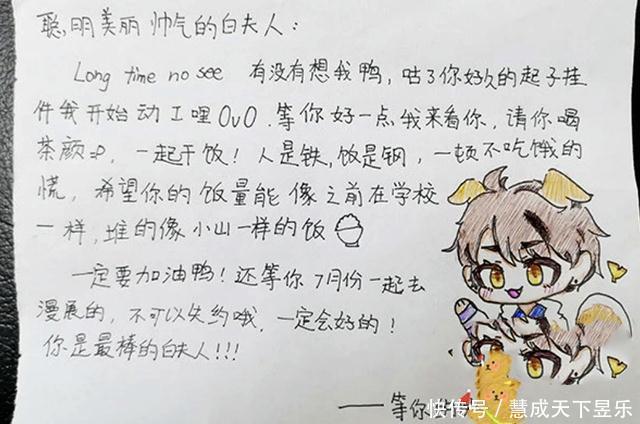 聪明美丽帅气的白夫人：
Long time no see 有没有想我鸭，咕了你好久的起子挂
件我开始动工哩OvO.等你好一点我来看你，请你喝
茶颜:P，一起干饭！人是铁,饭是钢，一顿不吃饿的
慌，希望你的饭量能像之前在学校
一样,堆的像小山一样的饭
一定要加油鸭！还等你7月份一起去
漫展的，不可以失约哦.一定会好的！
你是最棒的白夫人!!!
——等你
快传号／慧成天下昱乐